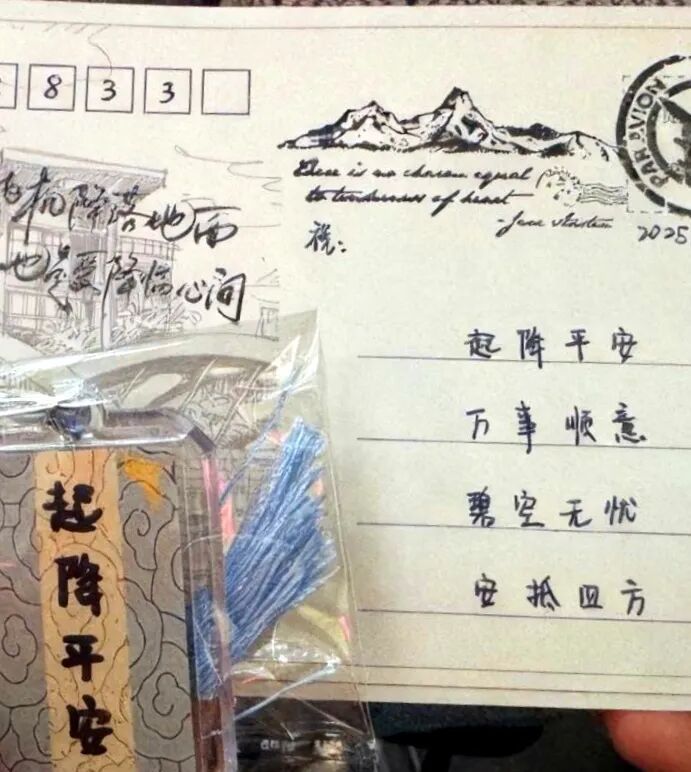 8 3 3
There is no charm equal
to tenderness of heart
-Jane Austen
PAR AVION
2025
机降落地面
也是爱降临心间
祝:
起降平安
万事顺意
碧空无忧
安抵四方
起降平安